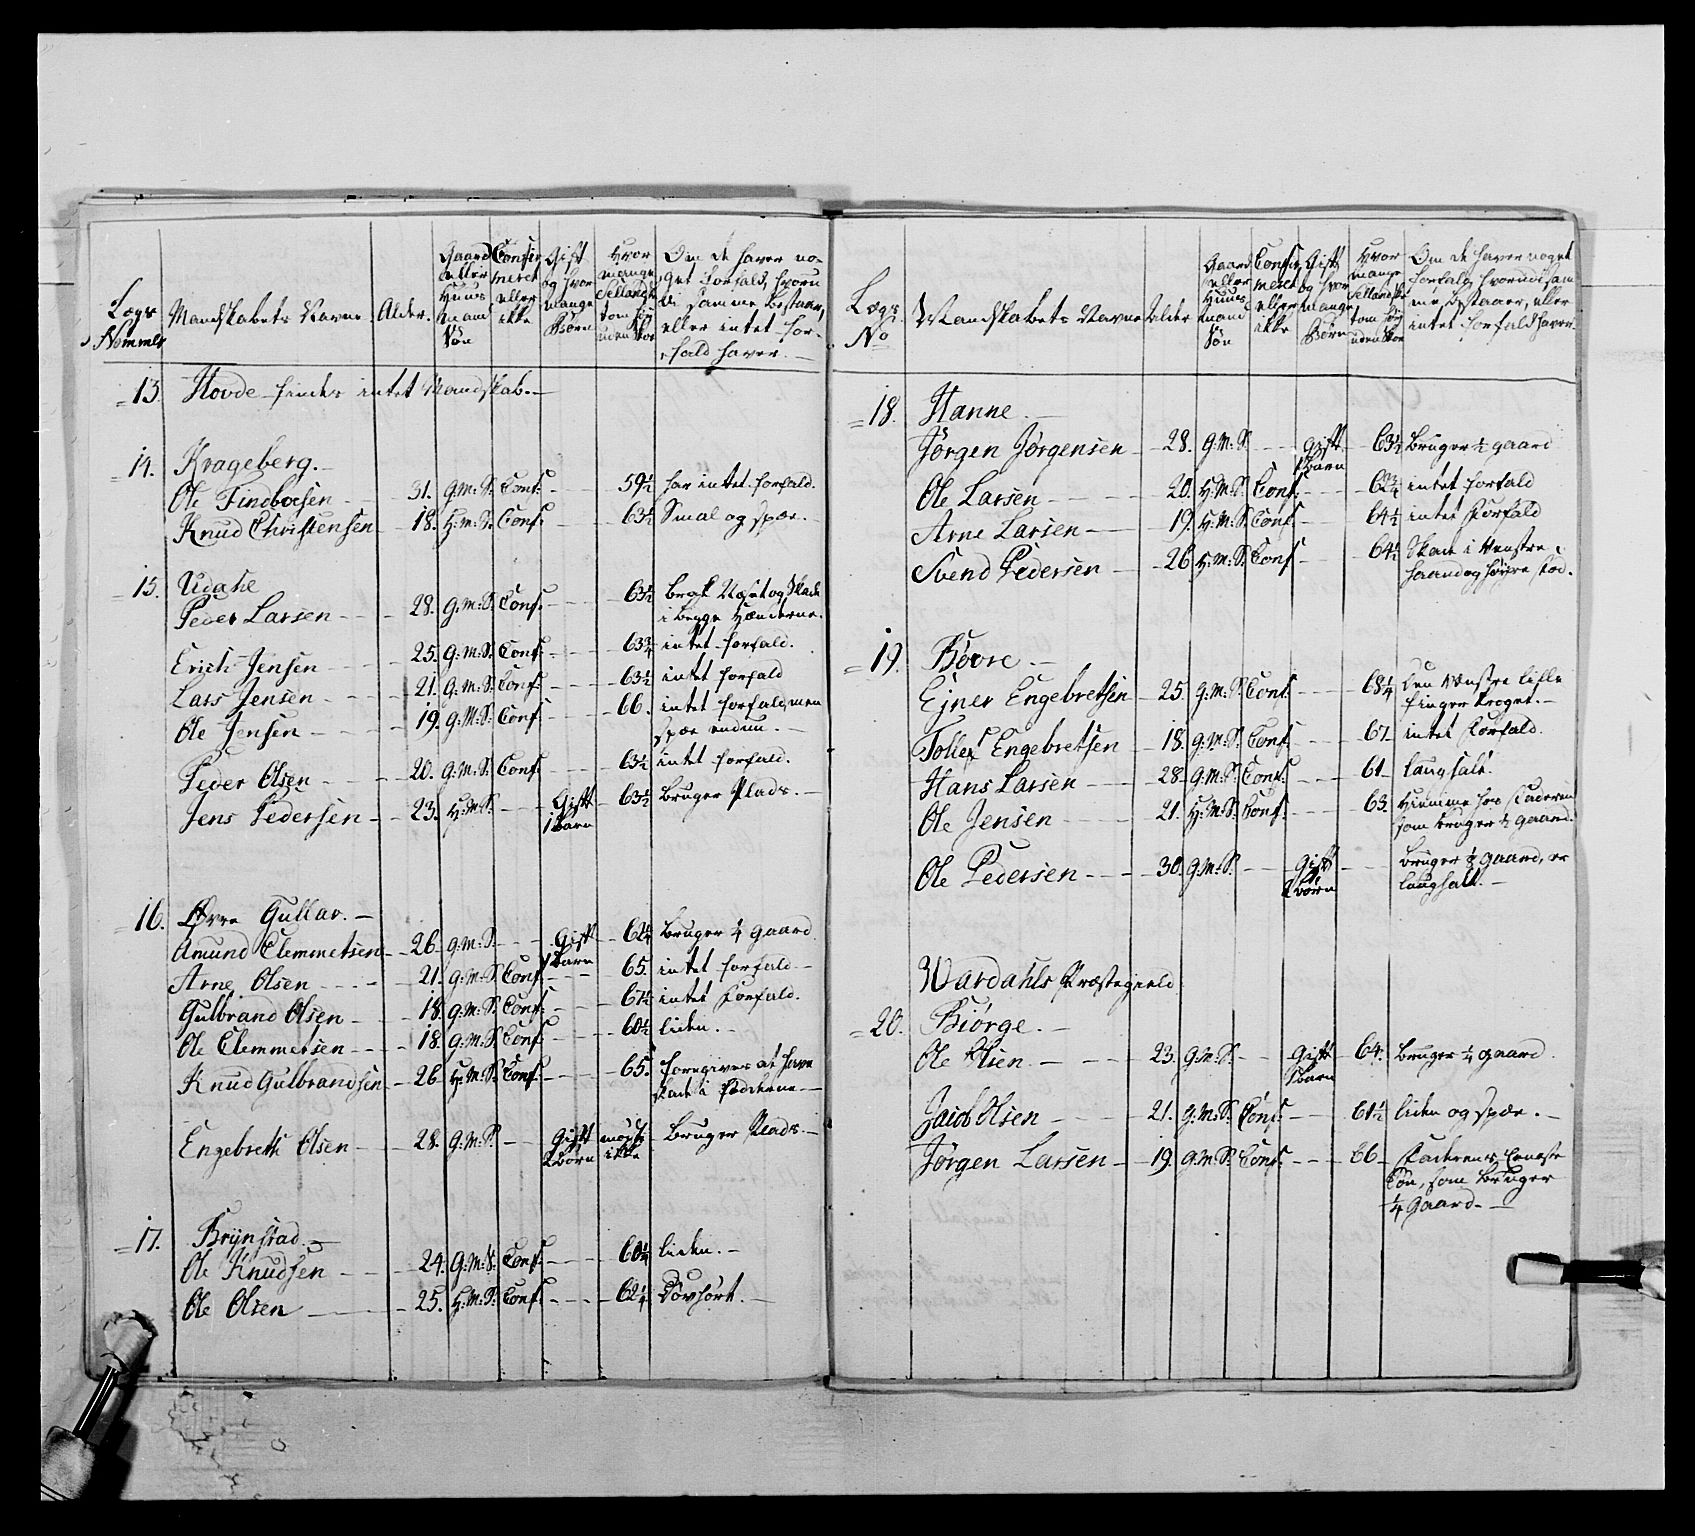 Lægs Nommer | Mandskabets Navne | Alder. | Gaard eller Huus mand Søn | Confirmeret eller ikke | Gift og hvor mange Børn | Hvor mange Sellandske tom høy uden Skoe | Om de haver noget Forfald, hvorudi samme bestaaer, eller intet Forfald haver.
13. Hovde findes intet Mandskab.
14. Krageberg.
Ole Findboesen 31. G.M.S. Conf: 59½ har intet forfald.
Knud Christensen 18. H.M.S. Conf: 63½ Smal og spæ.
15. Udahl
Peder Larsen 28. G.M.S. Conf: 63½ brak Næse og Skade
i begge Hænderne.
Erich Jensen 25. G.M.S. Conf: 63¾ intet forfald.
Lars Jensen 21. G.M.S. Conf: 63½ intet forfald
Ole Jensen 19. G.M.S. Conf: 66. intet forfald, men
spæ endnu.
Peder Olsen 20. G.M.S. Conf: 63½ intet forfald.
Jens Pedersen 23. H.M.S. Gift 1 Barn 63½ bruger Plads.
16. Øvre Gullav.
Amund Clemmetsen 26. G.M.S. Gift 1 Barn 62¼ bruger ¼ gaard
Arne Olsen 21. G.M.S. Conf: 65. intet forfald
Gulbrand Olsen 18. G.M.S. Conf: 67½ intet Forfald.
Ole Clemmetsen 18. G.M.S. Conf: 60½ liden.
Knud Gulbrandsen 26 H.M.S. Conf: 65. foregiver at have
skade i Fødderne
Engebreth Olsen 28. G.M.S. Gift 2 Børn mødt ikke bruger Plads.
17. Brynstad.
Ole Knudsen 24. G.M.S. Conf: 60¼ liden.
Ole Olsen 25. H.M.S. Conf: 62¼ Døvhørt.
Lægs No | Mandskabets Navne | Alder | Gaard eller Huus mand Søn | Confirmeret eller ikke | Gift og hvor mange Børn | Hvor mange Sellandske tom høy uden Skoe | Om de haver noget forfald, hvorudi samme bestaaer, eller intet forfald haver.
18. Hanne.
Jørgen Jørgensen 28. G.M.S. gift 1 Barn 63½ bruger ½ gaard
Ole Larsen 20. H.M.S. Conf: 62¾ intet forfald
Arne Larsen 19. H.M.S. Conf: 64½ intet Forfald
Svend Pedersen 26 H.M.S. Conf 64½ Skade i Venstre
haand og høyre Fod.
19. Bøvre.
Ejner Engebretsen 25. G.M.S. Conf: 68¼ Den Venstre lille
finger kroget.
Tollef Engebretsen 18. G.M.S. Conf: 67 intet Forfald.
Hans Larsen 28 G.M.S. Conf: 61 laughalt.
Ole Jensen 21. H.M.S. Conf: 63. Hiemme hos Faderen
som bruger ½ gaard.
Ole Pedersen 30. G.M.S. Gift 2 børn bruger ½ gaard, er
laughalt.
Wardahls Præstegield
20. Biørge.
Ole Olsen 23. G.M.S. Gift 1 barn 64. bruger ¼ gaard.
Jacob Olsen 21. G.M.S. Conf: 61½ liden og spæ.
Jørgen Larsen 19. G.M.S. Conf: 66 Faderens Eneste
Søn, som bruger
¼ Gaard.